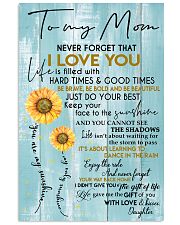 To my Mom
NEVER FORGET THAT
I LOVE YOU
Life is filled with
HARD TIMES & GOOD TIMES
BE BRAVE, BE BOLD AND BE BEAUTIFUL
JUST DO YOUR BEST
Keep your
face to the sunshine
AND YOU CANNOT SEE
THE SHADOWS
Life isn't about waiting for
the storm to pass
IT'S ABOUT LEARNING TO
DANCE IN THE RAIN
Enjoy the ride
And never forget
YOUR WAY BACK HOME
I DIDN'T GIVE YOU The gift of life
Life gave me the GIFT of you
WITH LOVE & kisses
Daughter
You are my sunshine